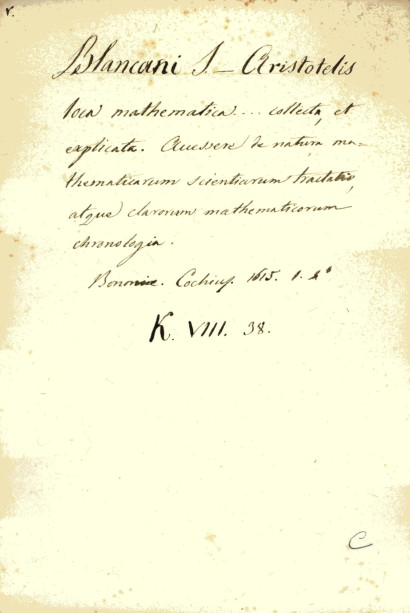 r.
Blancani J_ Aristotelis
loca mathematica.... collecta, et
explicata. Accessere de natura ma-
thematicarum scientiarum tractatio,
atque clarorum mathematicorum
chronologia.
Bononiæ. Cochius. 1615. 1. 4°
K. VIII. 38.
C